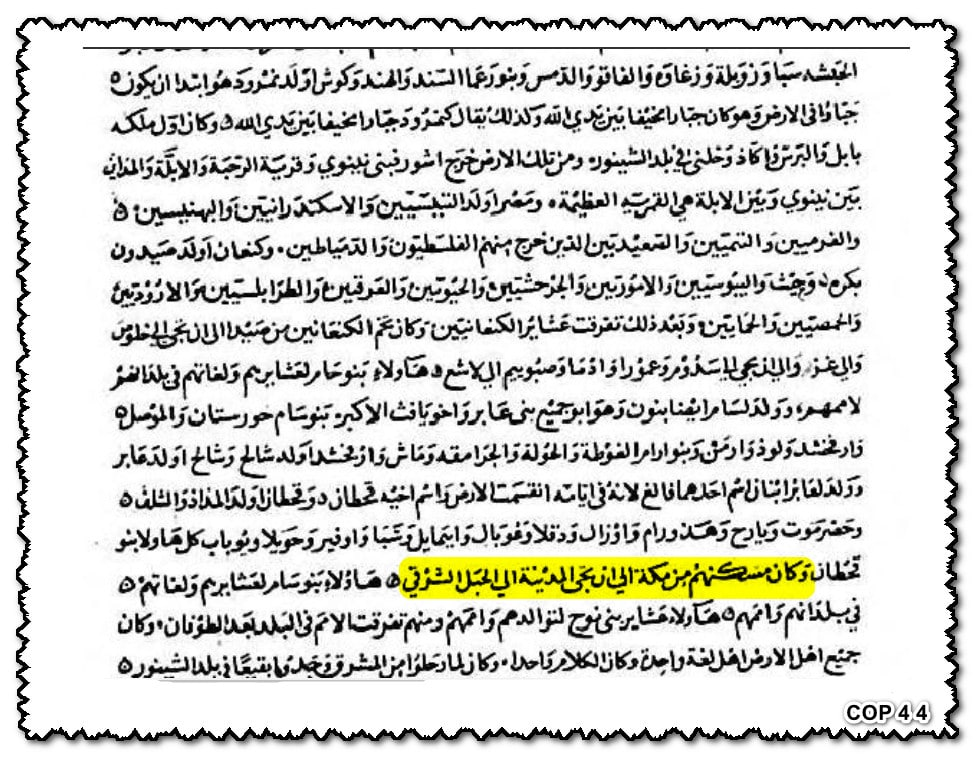 الحبشه سبا وزويلة وزغاوة والفاقو والدمس وبنو رعما السند والهند وكوش اولد نمرود وهو ابتدا ان يكون ٥
جبارا في الارض وهو كان جبارا مخيفا بين يدي الله ولذلك يقال كنمرود جبارا مخيفا بين يدي الله ٥ وكان اول ملكه
بابل والبرس وا كاذ وخلنى في بلد الشينور ومن تلك الارض خرج اشور فبنى نينوي وقرية الرحبة والابلة والمداين
بين نينوي وبين الابلة هي القريه العظيمة ومصر اولد التنيسيين والاسكندرانيين والبهنيسين ٥
والفرميين والتميين والصعيديين الذين خرج منهم الفلسطيون والدمياطين وكنعان اولد صيدون
بكره وحيث واليبوسيين والاموريين والجرحشيين والحيوتين والعرقين والطرابلسيين والاروديين
والحمصيين والحمايين وبعد ذلك تفرقت عشاير الكنعانيين وكان تخم الكنعانين من صيدا الى ان تجي الخلوص
والي غزه والي ان تجي الي سدوم وعمورا وادما وصبوييم الي لاشع ٥ هاولاء بنو حام لعشايرهم ولغاتهم في بلدانهم
لاممهم وولد لسام ايضا بنون وهو ابو جميع بنى عابر واخو يافث الاكبر بنو سام خورستان والموصل ٥
وارفخشد ولوذ وارمن وبنو ارام الغوطة والحولة والجرامقه وماش وارفخشد اولد شالح وشالح اولد عابر
وولد لعابر ابنان اسم احدهما فالغ لانه في ايامه انقسمت الارض واسم اخيه قحطان ٥ وقحطان اولد المداذ والشلف ٥
وحضرموت ويارح وهذورام واوزال ودقلا وعوبال وابيمايل وشبا واوفير وحويلا ويوباب كل هاولا بنو
قحطان وكان مسكنهم من مكة الي ان تجى المدينة الي الجبل الشرقي ٥ هاؤلاء بنو سام لعشايرهم ولغاتهم ٥
في بلدانهم واممهم ٥ هاولاء عشاير بنى نوح لتوالدهم واممهم ومنهم تفرقت الامم في البلد بعد الطوفان وكان
جميع اهل الارض اهل لغة واحدة وكان الكلام واحدا وكان لما رحلوا من المشرق وجدوا بقيعا في بلد الشينور ٥
COP 4 4